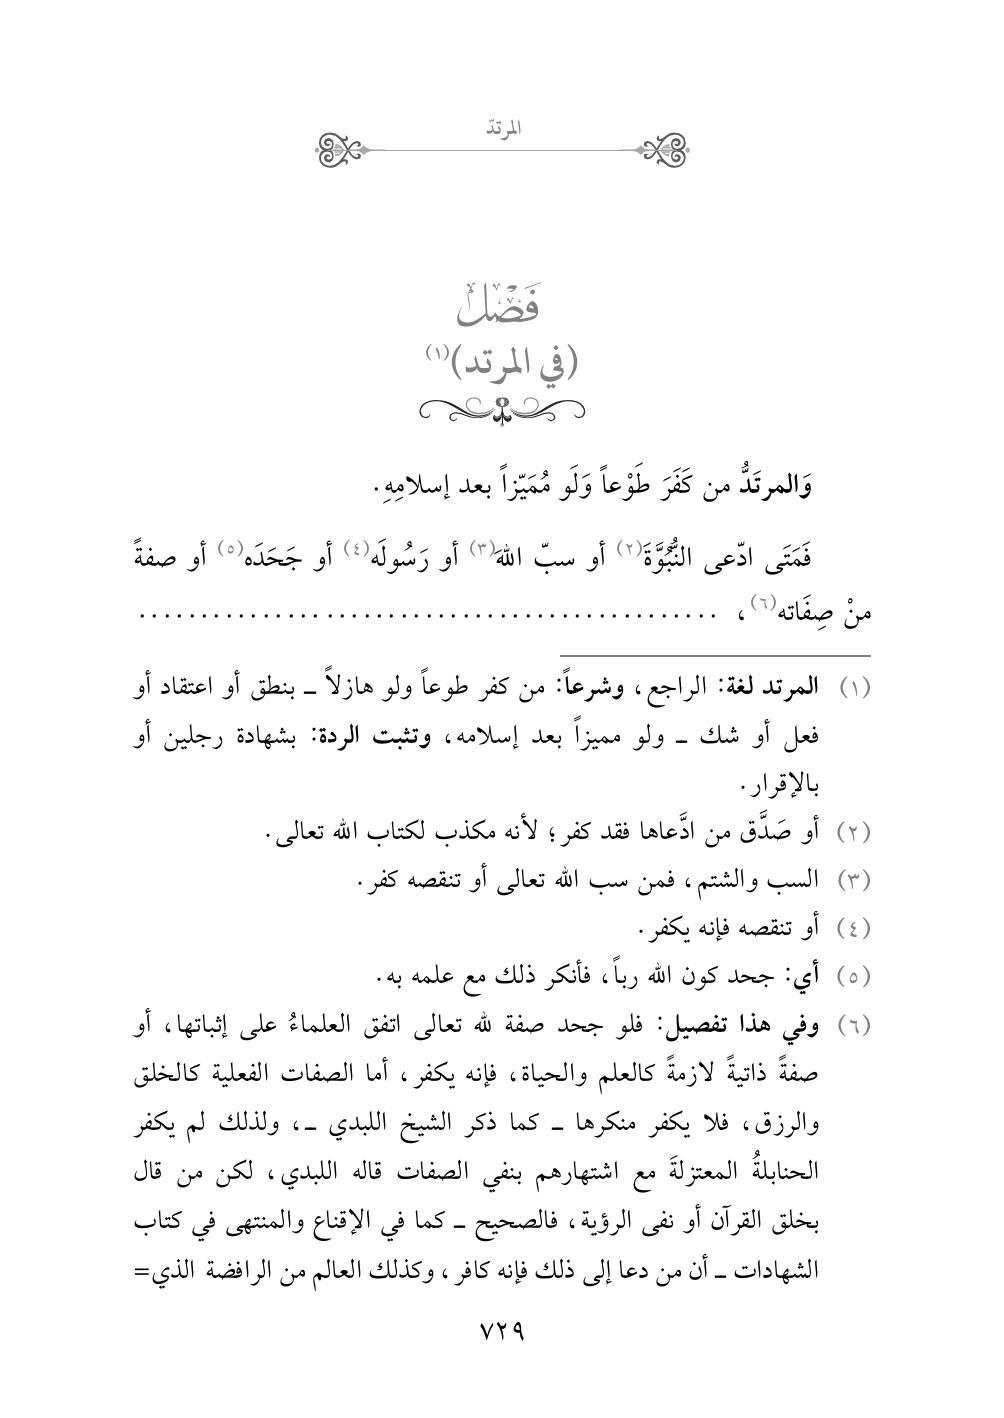 المرتدّ
فَصْلٌ
(في المرتد)(١)
وَالمرتَدُّ من كَفَرَ طَوْعاً وَلَو مُمَيّزاً بعد إسلامِهِ.
فَمَتَى ادّعى النُّبُوَّةَ(٢) أو سبّ اللهَ(٣) أو رَسُولَه(٤) أو جَحَدَه(٥) أو صفةً
منْ صِفَاته(٦)، ...............................................
(١) المرتد لغة: الراجع، وشرعاً: من كفر طوعاً ولو هازلاً ــ بنطق أو اعتقاد أو
فعل أو شك ــ ولو مميزاً بعد إسلامه، وتثبت الردة: بشهادة رجلين أو
بالإقرار.
(٢) أو صَدَّق من ادَّعاها فقد كفر؛ لأنه مكذب لكتاب الله تعالى.
(٣) السب والشتم، فمن سب الله تعالى أو تنقصه كفر.
(٤) أو تنقصه فإنه يكفر.
(٥) أي: جحد كون الله رباً، فأنكر ذلك مع علمه به.
(٦) وفي هذا تفصيل: فلو جحد صفة لله تعالى اتفق العلماءُ على إثباتها، أو
صفةً ذاتيةً لازمةً كالعلم والحياة، فإنه يكفر، أما الصفات الفعلية كالخلق
والرزق، فلا يكفر منكرها ــ كما ذكر الشيخ اللبدي ــ، ولذلك لم يكفر
الحنابلةُ المعتزلةَ مع اشتهارهم بنفي الصفات قاله اللبدي، لكن من قال
بخلق القرآن أو نفى الرؤية، فالصحيح ــ كما في الإقناع والمنتهى في كتاب
الشهادات ــ أن من دعا إلى ذلك فإنه كافر، وكذلك العالم من الرافضة الذي=
٧٢٩